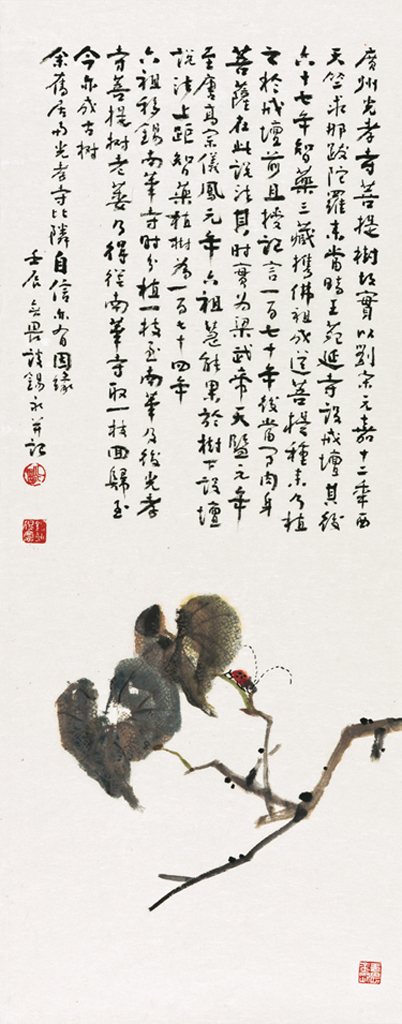 廣州光孝寺菩提樹故實以劉宋元嘉十二年西
天竺求那跋陀羅來當時王苑延寺設戒壇其後
六十七年智藥三藏攜佛祖成道菩提種來乃植
之於戒壇前且授記言一百七十年後當有肉身
菩薩在此說法其時實為梁武帝天監元年
至唐高宗儀鳳元年六祖慧能果於樹下設壇
說法上距智藥植樹為一百七十四年
六祖移錫南華寺時分植一枝至南華及後光孝
寺菩提樹老萎乃得從南華寺取一枝回歸至
今亦成古樹
余舊居與光孝寺比隣自信亦有因緣
壬辰 畏談錫永并記